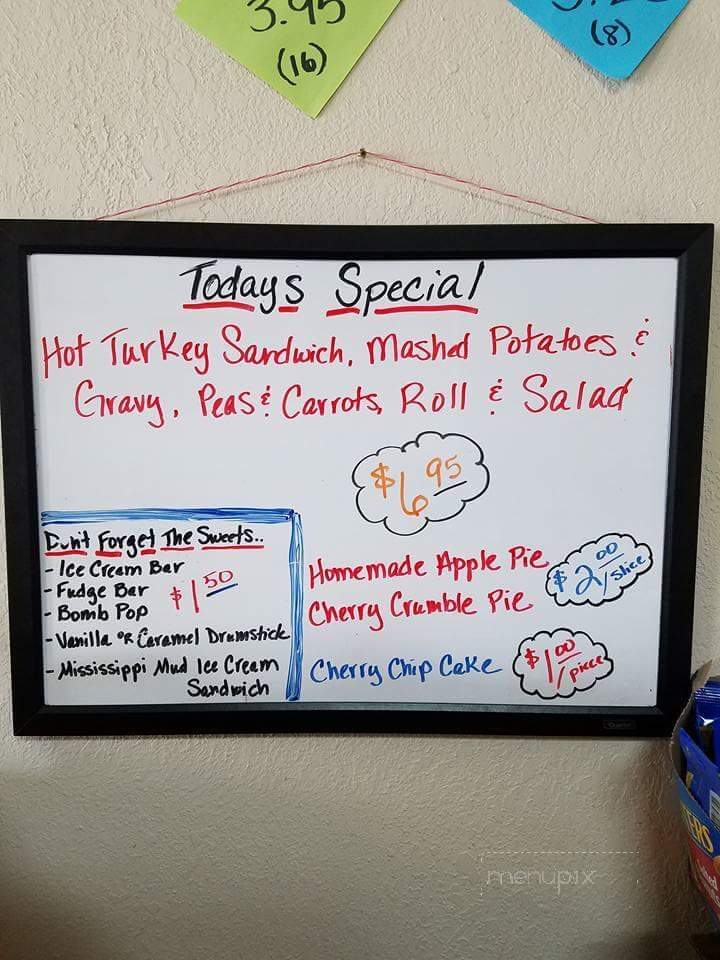 3.95
(16)
(8)
Todays Special
Hot Turkey Sandwich, Mashed Potatoes &
Gravy, Peas & Carrots, Roll & Salad
$6.95
Don't Forget The Sweets..
- Ice Cream Bar
- Fudge Bar
- Bomb Pop
$1.50
- Vanilla OR Caramel Drumstick
- Mississippi Mud Ice Cream
Sandwich
Homemade Apple Pie
Cherry Crumble Pie
$2.00/slice
Cherry Chip Cake
$1.00/piece
Quartet
ERS
menupix